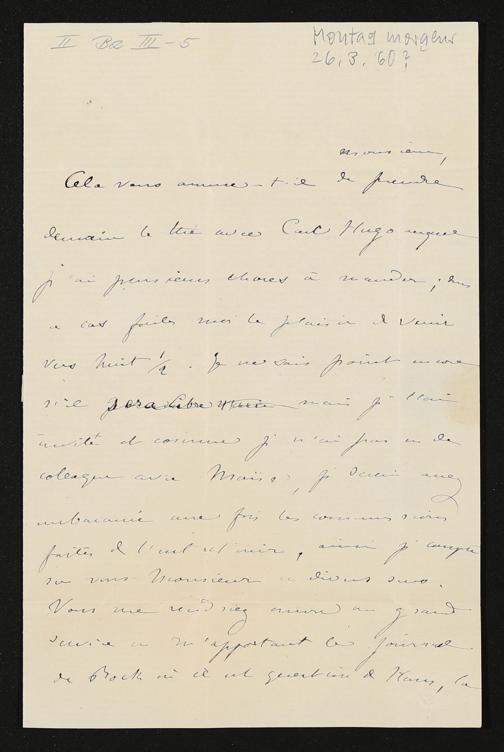 II BR III - 5
Montag morgens
26. 3. 60?
monsieur,
Cela vous amuse-t-il de prendre
demain le thé avec Carl Hugo auquel
j'ai plusieurs choses à mander; dans
ce cas faites moi le plaisir de venir
vers huit 1/2. Je ne sais point encore
s'il sera libre mais je l'ai
invité et comme je n'ai pas eu de
colloque avec, je serai assez
embarassée une fois les commissions
faites de l'entretenir, ainsi je compte
sur vous Monsieur
Vous me rendriez encore un grand
service en m'apportant le journal
de Bock où il est question de Hans, la